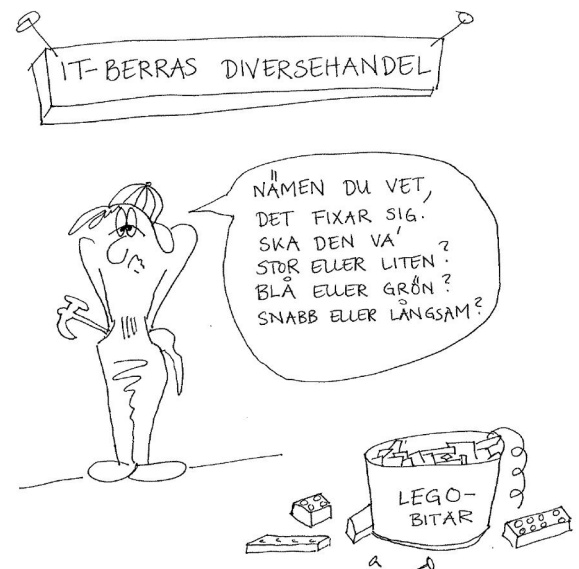 IT-BERRAS DIVERSEHANDEL
NÄMEN DU VET,
DET FIXAR SIG.
SKA DEN VA'
STOR ELLER LITEN?
BLÅ ELLER GRÖN?
SNABB ELLER LÅNGSAM?
LEGO-
BITAR